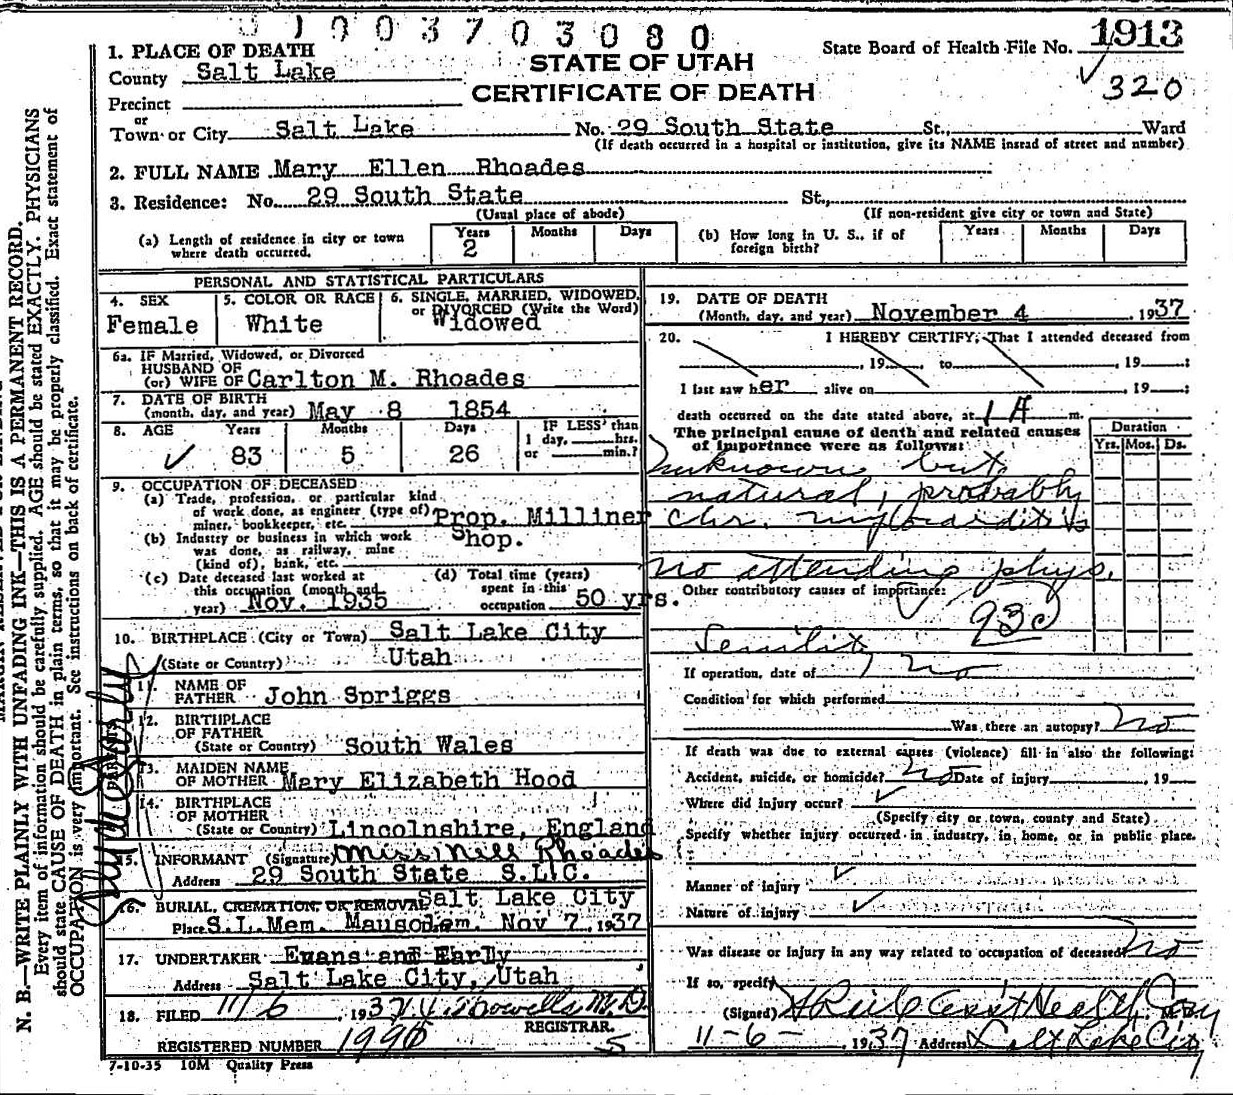 1003703080
State Board of Health File No. 1913
320
STATE OF UTAH
CERTIFICATE OF DEATH
1. PLACE OF DEATH
County Salt Lake
Precinct
or
Town or City Salt Lake No. 29 South State St., Ward
(If death occurred in a hospital or institution, give its NAME insead of street and number)
2. FULL NAME Mary Ellen Rhoades
3. Residence: No. 29 South State St.,
(Usual place of abode) (If non-resident give city or town and State)
(a) Length of residence in city or town where death occurred. Years 2 Months Days
(b) How long in U. S., if of foreign birth? Years Months Days
PERSONAL AND STATISTICAL PARTICULARS
4. SEX Female
5. COLOR OR RACE White
6. SINGLE, MARRIED, WIDOWED, or DIVORCED (Write the Word) Widowed
6a. IF Married, Widowed, or Divorced
HUSBAND OF
(or) WIFE OF Carlton M. Rhoades
7. DATE OF BIRTH
(month, day, and year) May 8 1854
8. AGE Years 83 Months 5 Days 26 IF LESS than 1 day, hrs. or min.?
9. OCCUPATION OF DECEASED
(a) Trade, profession, or particular kind
of work done, as engineer (type of)
miner, bookkeeper, etc. Prop. Milliner
(b) Industry or business in which work Shop.
was done, as railway, mine
(kind of), bank, etc.
(c) Date deceased last worked at
this occupation (month and
year) Nov. 1935
(d) Total time (years)
spent in this
occupation 50 yrs.
10. BIRTHPLACE (City or Town) Salt Lake City
(State or Country) Utah
PARENTS
11. NAME OF
FATHER John Spriggs
12. BIRTHPLACE
OF FATHER
(State or Country) South Wales
13. MAIDEN NAME
OF MOTHER Mary Elizabeth Hood
14. BIRTHPLACE
OF MOTHER
(State or Country) Lincolnshire, England
15. INFORMANT (Signature) Miss Nell Rhoades
Address 29 South State S.L.C.
16. BURIAL, CREMATION, OR REMOVAL Salt Lake City
Place S.L.Mem. Mausoleum. Nov 7, 1937
17. UNDERTAKER Evans and Early
Address Salt Lake City, Utah
18. FILED 11/6, 1937
REGISTRAR.
REGISTERED NUMBER 1990
5
7-10-35 10M Quality Press
19. DATE OF DEATH
(Month, day, and year) November 4 1937
20. I HEREBY CERTIFY, That I attended deceased from
, 19 to , 19 :
I last saw her alive on , 19 :
death occurred on the date stated above, at 1 A m.
The principal cause of death and related causes
of importance were as follows:
Duration
Yrs. Mos. Ds.
Unknown but
natural, probably
Chr. myocarditis
No attending phys.
Other contributory causes of importance:
93c
Senility
If operation, date of no
Condition for which performed
Was there an autopsy? no
If death was due to external causes (violence) fill in also the following:
Accident, suicide, or homicide? no Date of injury 19
Where did injury occur?
(Specify city or town, county and State)
Specify whether injury occurred in industry, in home, or in public place.
Manner of injury
Nature of injury
Was disease or injury in any way related to occupation of deceased? no
If so, specify
(Signed) Asst Health Com M. D.
11-6- 1937 Address Salt Lake City
N. B.—WRITE PLAINLY WITH UNFADING INK—THIS IS A PERMANENT RECORD.
Every item of information should be carefully supplied. AGE should be stated EXACTLY. PHYSICIANS
should state CAUSE OF DEATH in plain terms, so that it may be properly classified. Exact statement of
OCCUPATION is very important. See instructions on back of certificate.